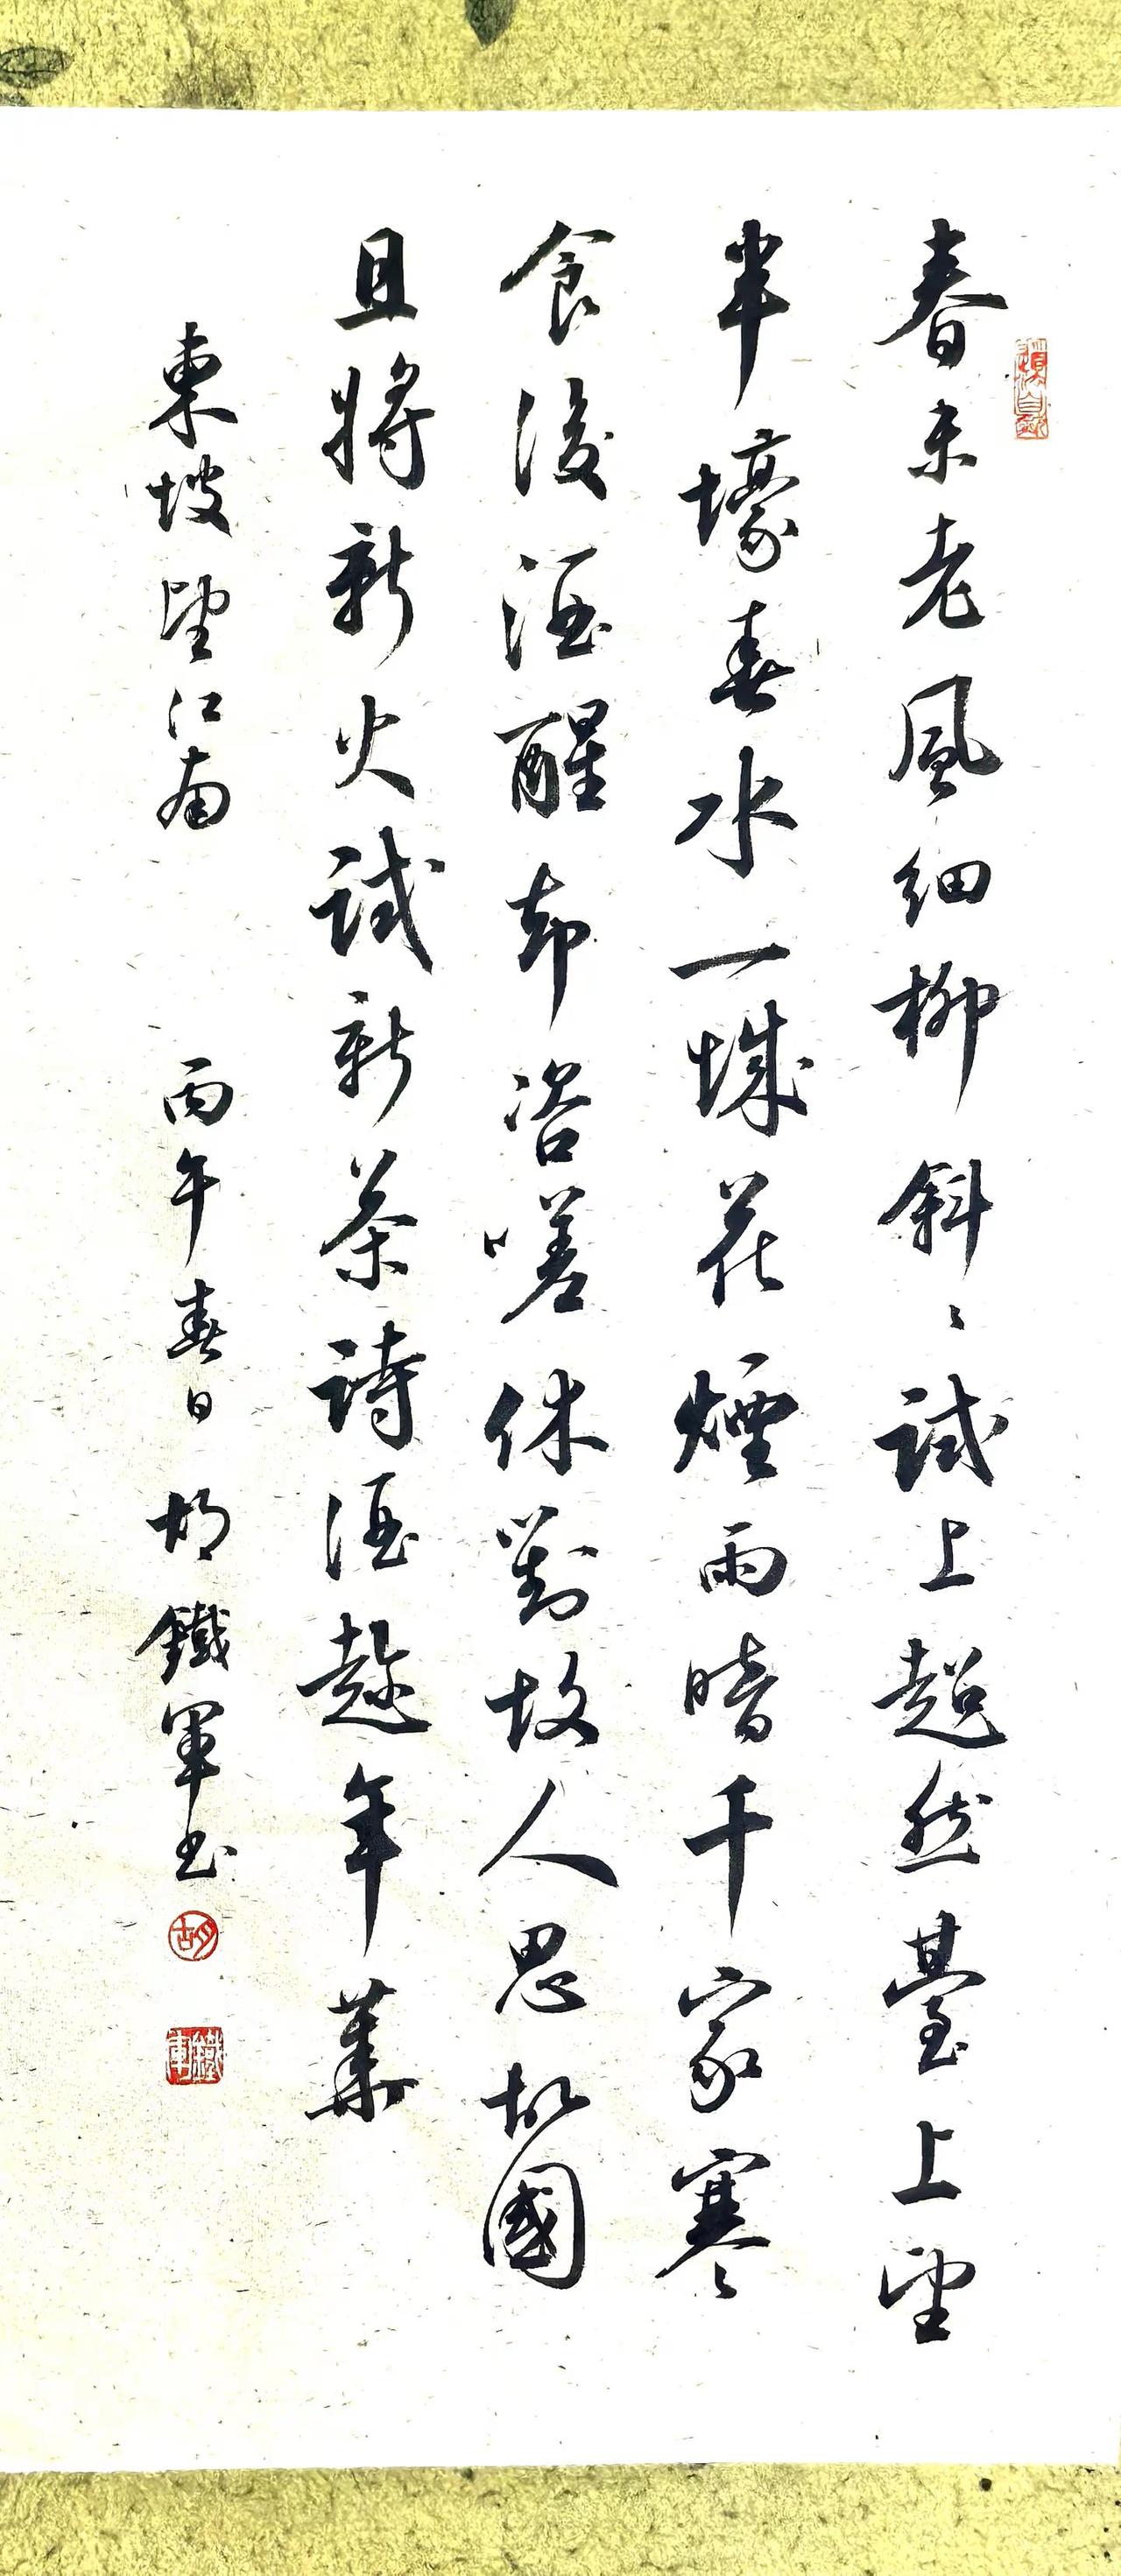 春未老風細柳斜〻試上超然臺上望
半壕春水一城花煙雨暗千家寒
食後酒醒却咨嗟休對故人思故國
且將新火試新茶詩酒趁年華
東坡望江南 丙午春日胡鐵軍书
胡
鐵軍